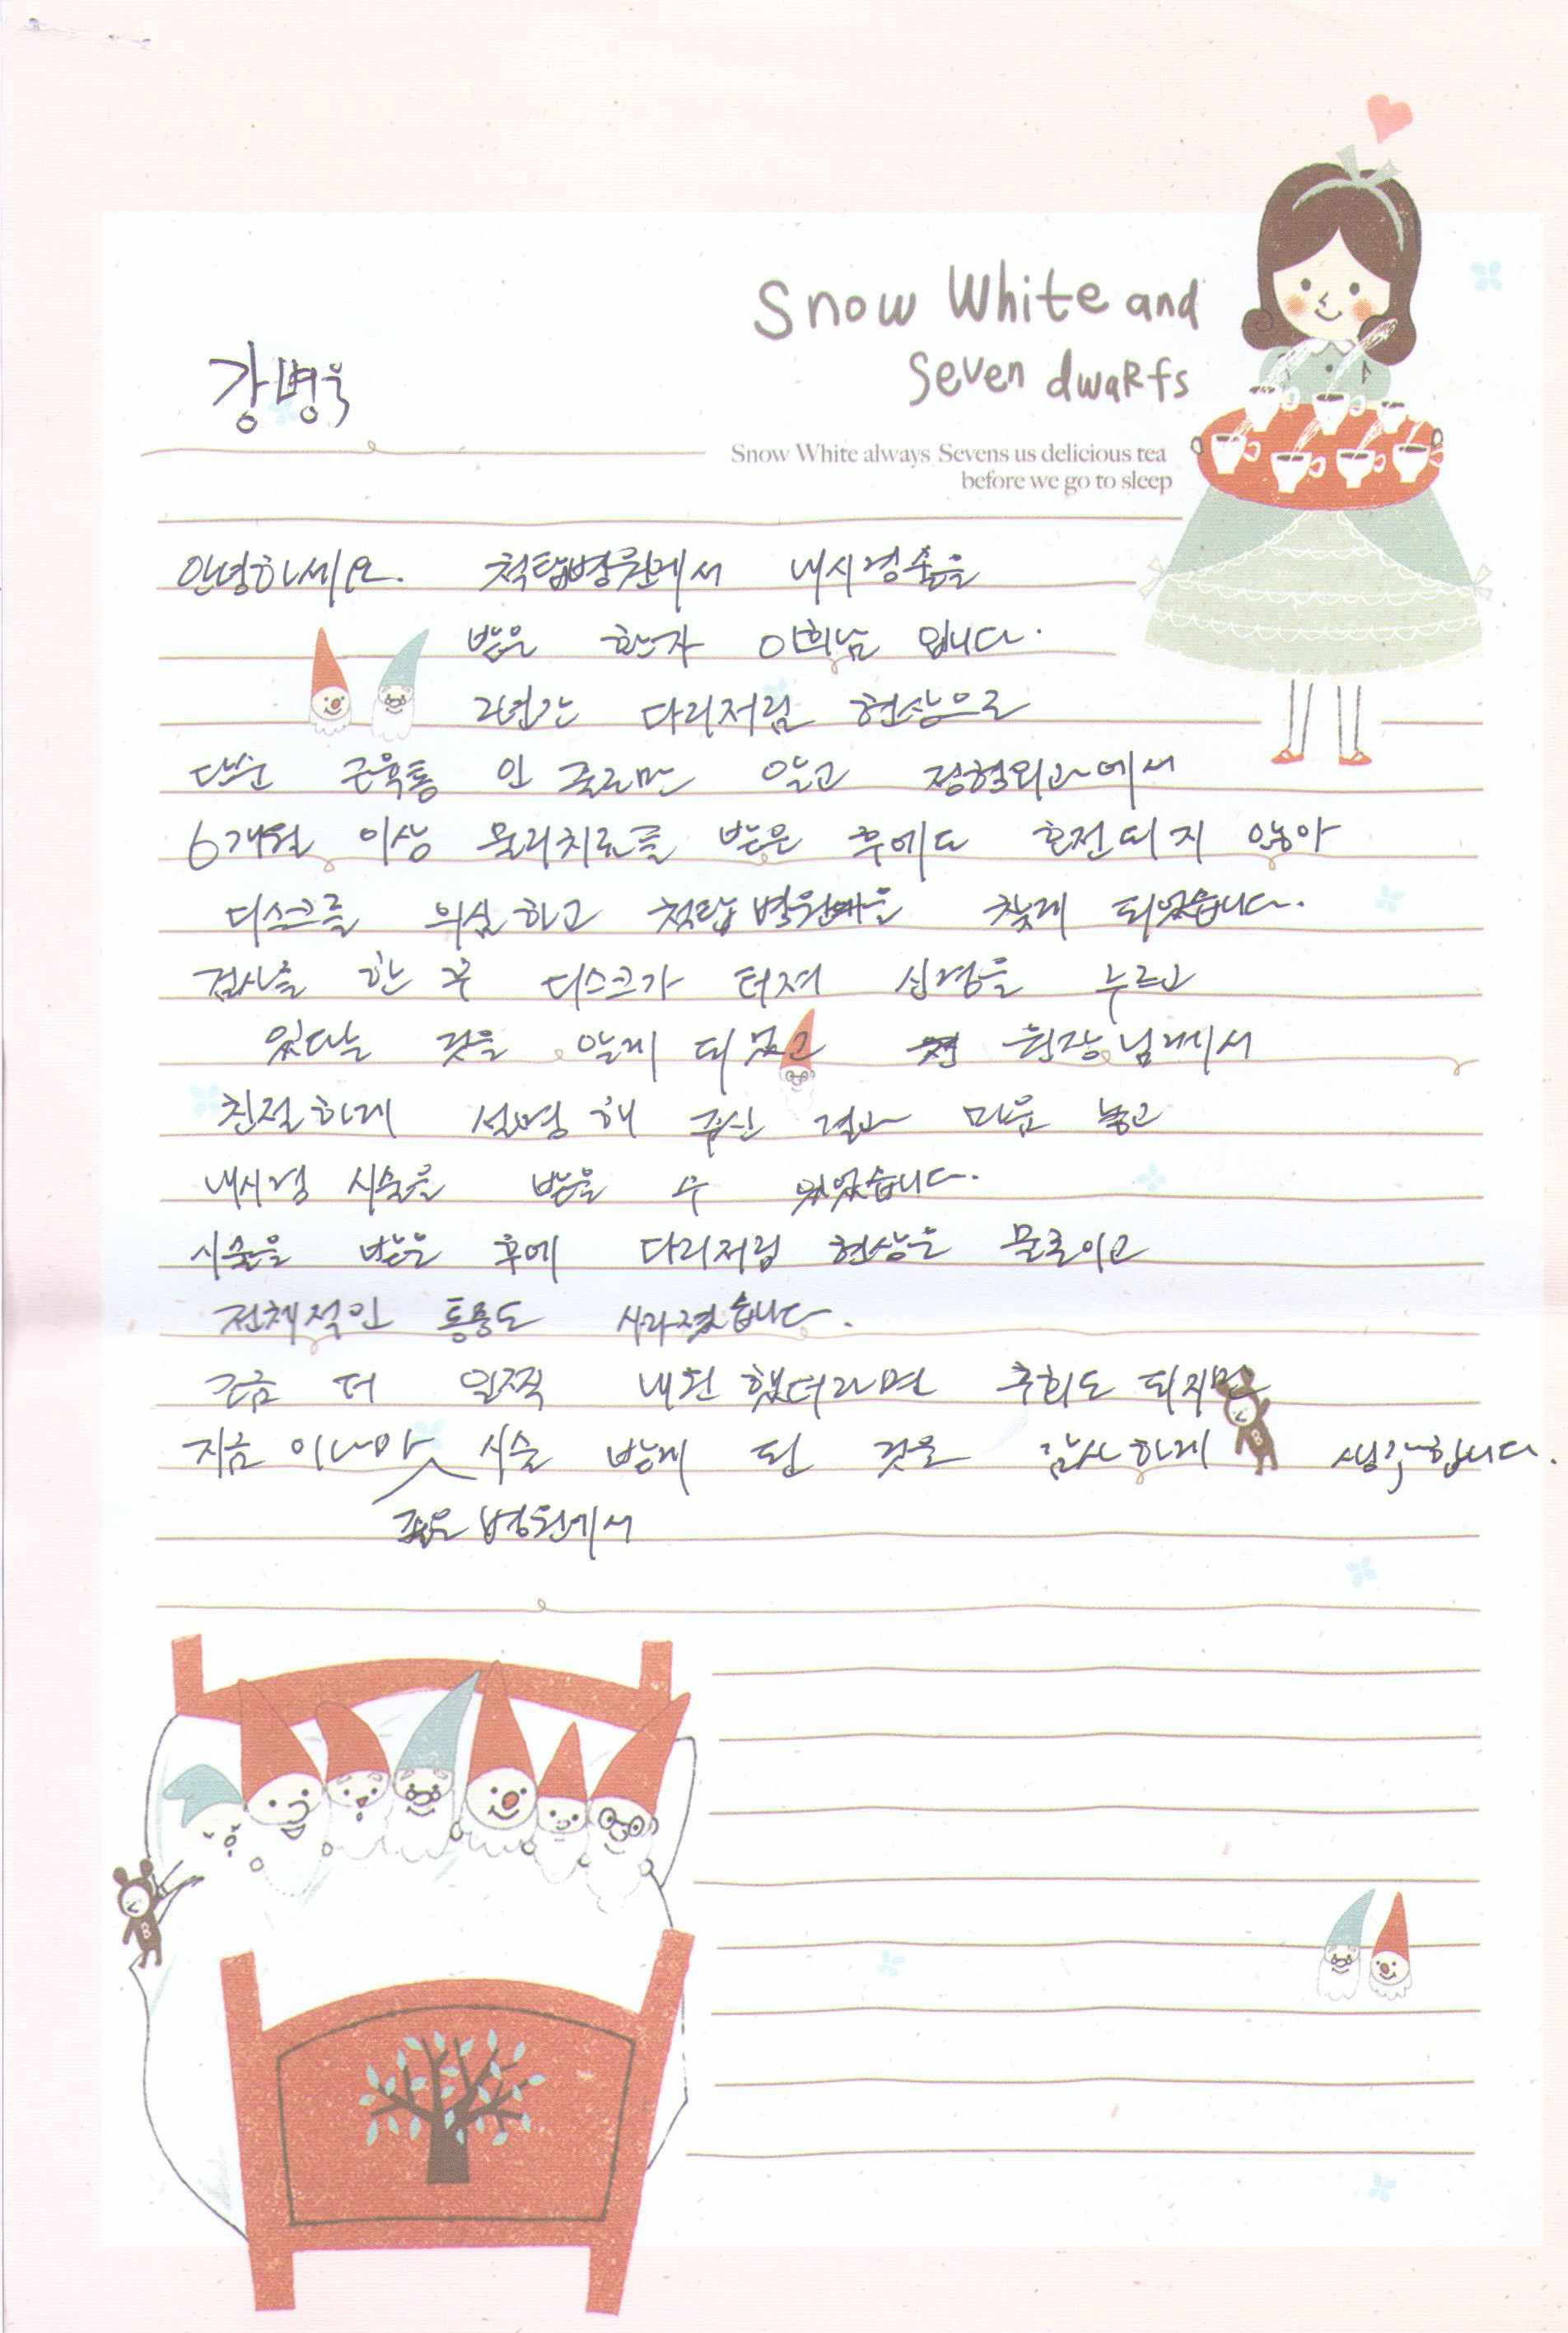 Snow White and
Seven dwaRfs
강병욱
Snow White always Sevens us delicious tea
before we go to sleep
안녕하세요. 척탑병원에서 내시경술을
받은 환자 이희남 입니다.
2년간 다리저림 현상으로
단순 근육통 인 줄로만 알고 정형외과에서
6개월 이상 물리치료를 받은 후에도 호전되지 않아
디스크를 의심하고 척탑병원을 찾게 되었습니다.
검사를 한 후 디스크가 터져 신경을 누르고
있다는 것을 알게 되었고 원장님께서
친절하게 설명해 주신 결과 마음 놓고
내시경 시술을 받을 수 있었습니다.
시술을 받은 후에 다리저림 현상은 물론이고
전체적인 통증도 사라졌습니다.
조금 더 일찍 내원했더라면 후회도 되지만
지금 이나마 시술 받게 된 것을 감사하게 생각합니다.
좋은 병원에서
B